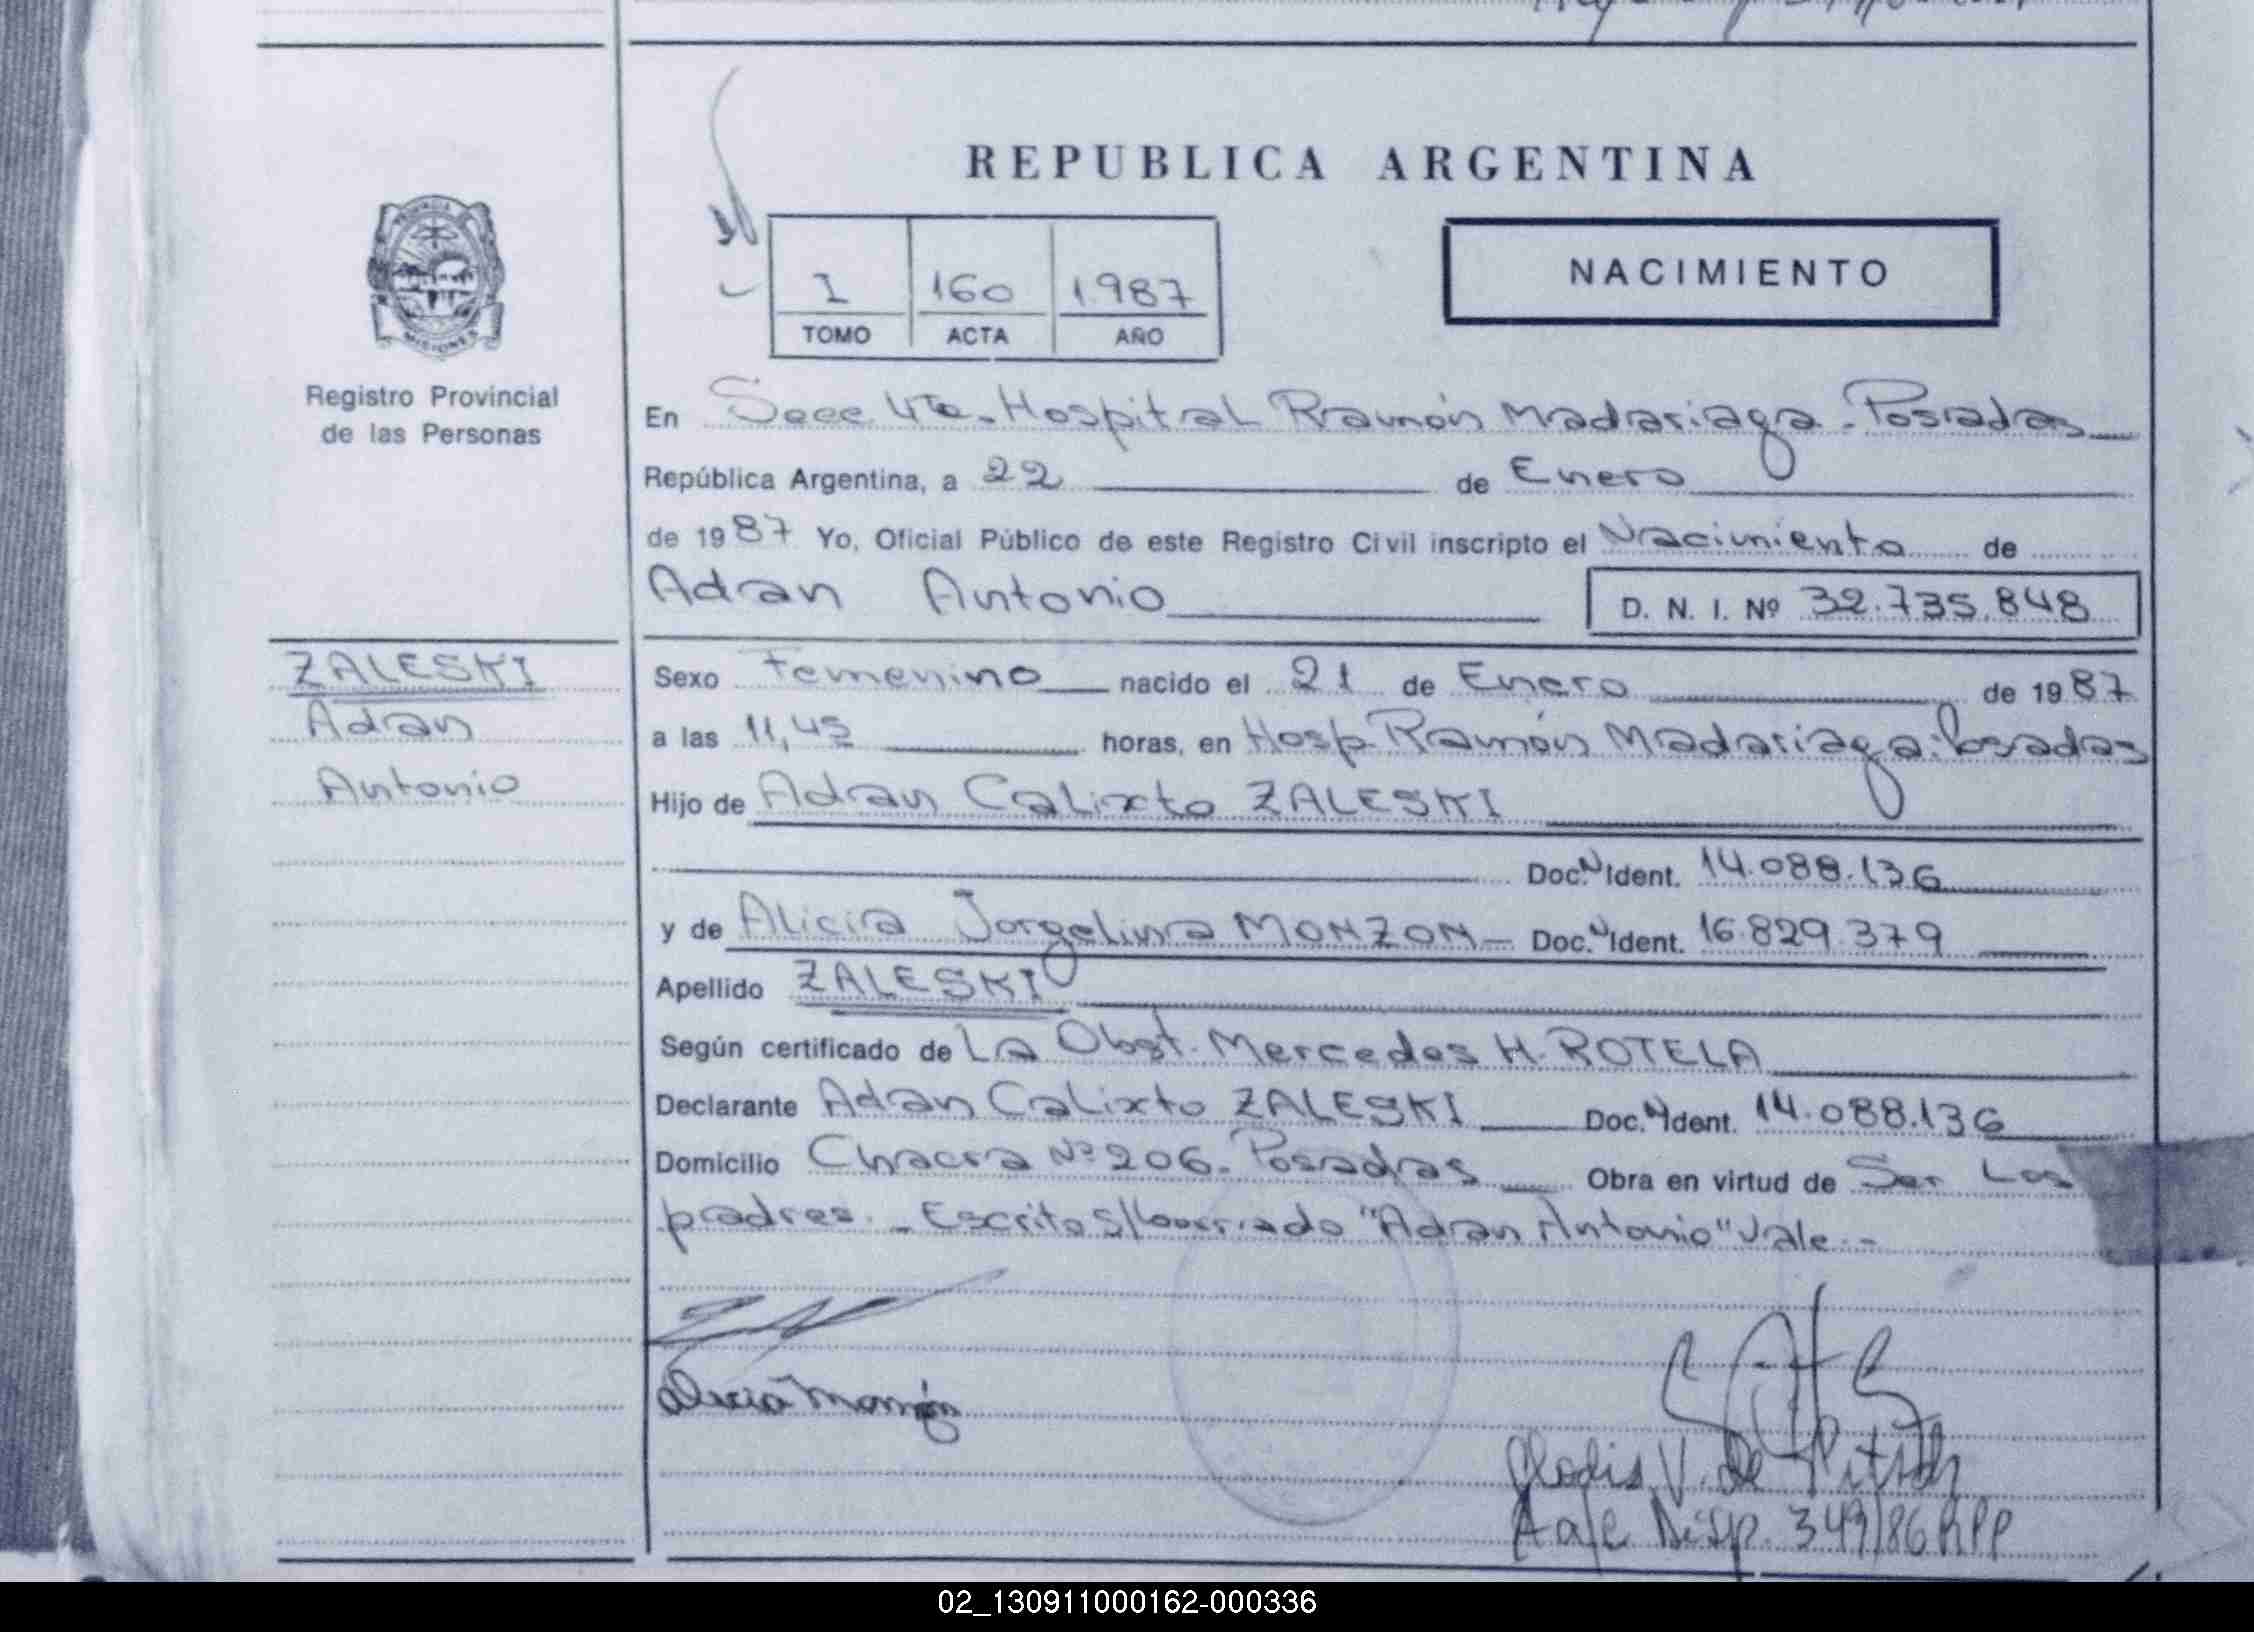 REPUBLICA ARGENTINA
NACIMIENTO
I 160 1987
TOMO ACTA AÑO
PROVINCIA DE
MISIONES
Registro Provincial
de las Personas
En Secc. 4ta - Hospital Ramón Madariaga - Posadas
República Argentina, a 22 de Enero
de 1987 Yo, Oficial Público de este Registro Civil inscripto el Nacimiento de
Adan Antonio
D. N. I. Nº 32.735.848
ZALESKI
Adan
Antonio
Sexo Femenino nacido el 21 de Enero de 1987
a las 11,45 horas, en Hosp. Ramón Madariaga. Posadas
Hijo de Adan Calixto ZALESKI
Doc. N Ident. 14.088.136
y de Alicia Jorgelina MONZON - Doc. N Ident. 16.829.379
Apellido ZALESKI
Según certificado de La Obst. Mercedes H. ROTELA
Declarante Adan Calixto ZALESKI Doc. N Ident. 14.088.136
Domicilio Chacra Nº 206. Posadas Obra en virtud de Ser Los
padres. - Escrito S/borrado "Adan Antonio" Vale. -
Alicia Monzón
Gladis V. de
Disp. 349/86 RPP
02_130911000162-000336